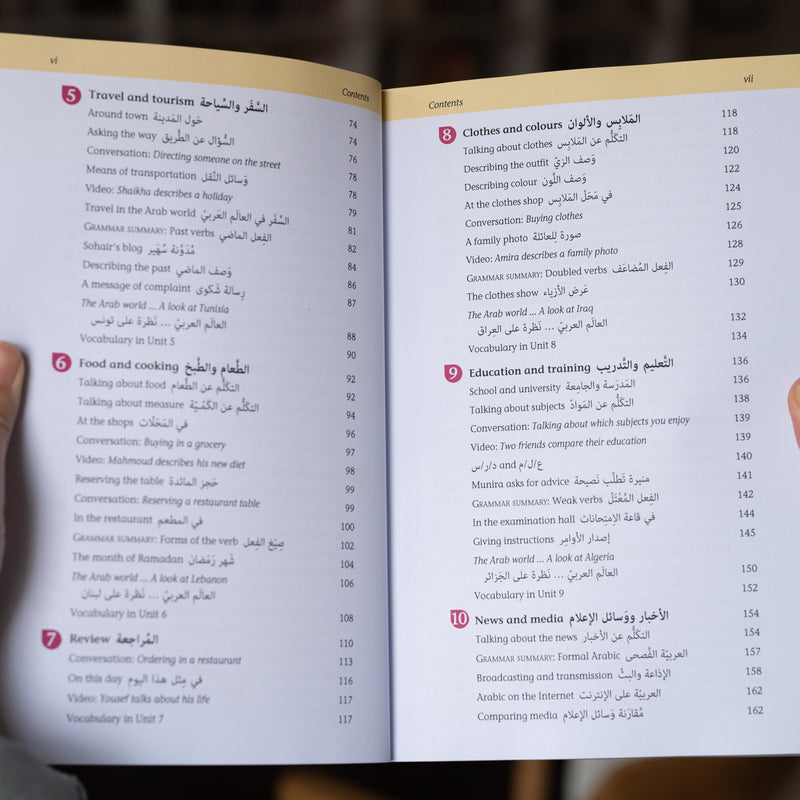 vi
Contents
5 Travel and tourism السَّفَر والسِّياحة
Around town حَول المَدينة 74
Asking the way السُّؤال عن الطَّريق 74
Conversation: Directing someone on the street 76
Means of transportation وَسائل النَّقل 78
Video: Shaikha describes a holiday 78
Travel in the Arab world السَّفَر في العالَم العَرَبيّ 79
GRAMMAR SUMMARY: Past verbs الفِعل الماضي 81
Sohair's blog مُدَوَّنة سُهَير 82
Describing the past وَصف الماضي 84
A message of complaint رِسالة شَكوى 86
The Arab world ... A look at Tunisia 87
العالَم العربيّ ... نَظرة على تونس
Vocabulary in Unit 5 88
6 Food and cooking الطَّعام والطَّبخ 90
Talking about food التكَلُّم عن الطَّعام 92
Talking about measure التكَلُّم عن الكَمّيّة 92
At the shops في المَحَلّات 94
Conversation: Buying in a grocery 96
Video: Mahmoud describes his new diet 97
Reserving the table حَجز المائدة 98
Conversation: Reserving a restaurant table 99
In the restaurant في المطعم 99
GRAMMAR SUMMARY: Forms of the verb صِيَغ الفِعل 100
The month of Ramadan شَهر رَمَضان 102
The Arab world ... A look at Lebanon 104
العالَم العربيّ ... نَظرة على لبنان 106
Vocabulary in Unit 6 108
7 Review المُراجعة 110
Conversation: Ordering in a restaurant 113
On this day في مِثل هذا اليوم 116
Video: Yousef talks about his life 117
Vocabulary in Unit 7 117
vii
Contents
8 Clothes and colours المَلابِس والألوان 118
Talking about clothes التكَلُّم عن المَلابِس 118
Describing the outfit وَصف الزيّ 120
Describing colour وَصف اللَّون 122
At the clothes shop في مَحَلّ المَلابِس 124
Conversation: Buying clothes 125
A family photo صورة لِلعائلة 126
Video: Amira describes a family photo 128
GRAMMAR SUMMARY: Doubled verbs الفِعل المُضاعَف 129
The clothes show عَرض الأزياء 130
The Arab world ... A look at Iraq
العالَم العربيّ ... نَظرة على العِراق 132
Vocabulary in Unit 8 134
9 Education and training التَّعليم والتَّدريب 136
School and university المَدرَسة والجامِعة 136
Talking about subjects التكَلُّم عن المَوادّ 138
Conversation: Talking about which subjects you enjoy 139
Video: Two friends compare their education 139
د/ر/س and ع/ل/م 140
Munira asks for advice منيرة تَطلُب نَصيحة 141
GRAMMAR SUMMARY: Weak verbs الفِعل المُعْتَلّ 142
In the examination hall في قاعة الاِمتِحانات 144
Giving instructions إصدار الأوامِر 145
The Arab world ... A look at Algeria
العالَم العربيّ ... نَظرة على الجَزائر 150
Vocabulary in Unit 9 152
10 News and media الأخبار ووَسائل الإعلام 154
Talking about the news التكَلُّم عن الأخبار 154
GRAMMAR SUMMARY: Formal Arabic العربيّة الفُصحى 157
Broadcasting and transmission الإذاعة والبثّ 158
Arabic on the Internet العربيّة على الإنترنت 162
Comparing media مُقارَنة وَسائل الإعلام 162